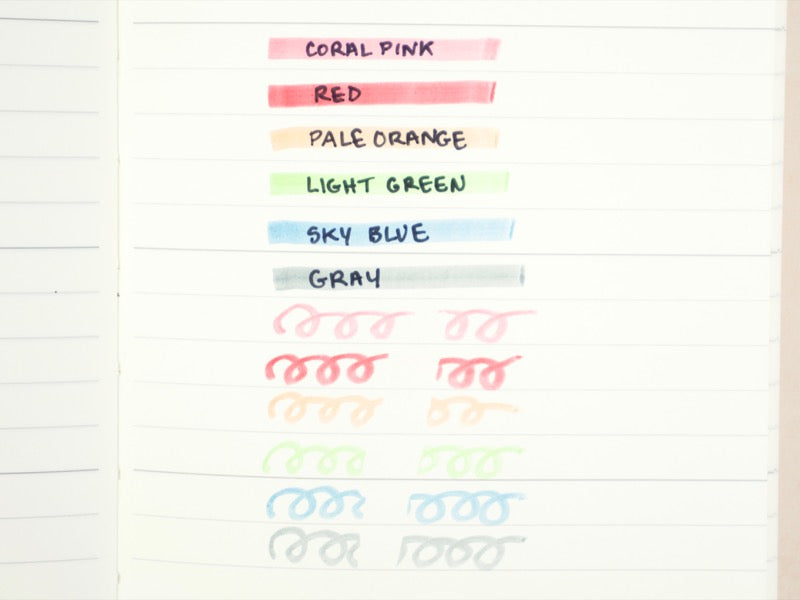 CORAL PINK
RED
PALE ORANGE
LIGHT GREEN
SKY BLUE
GRAY